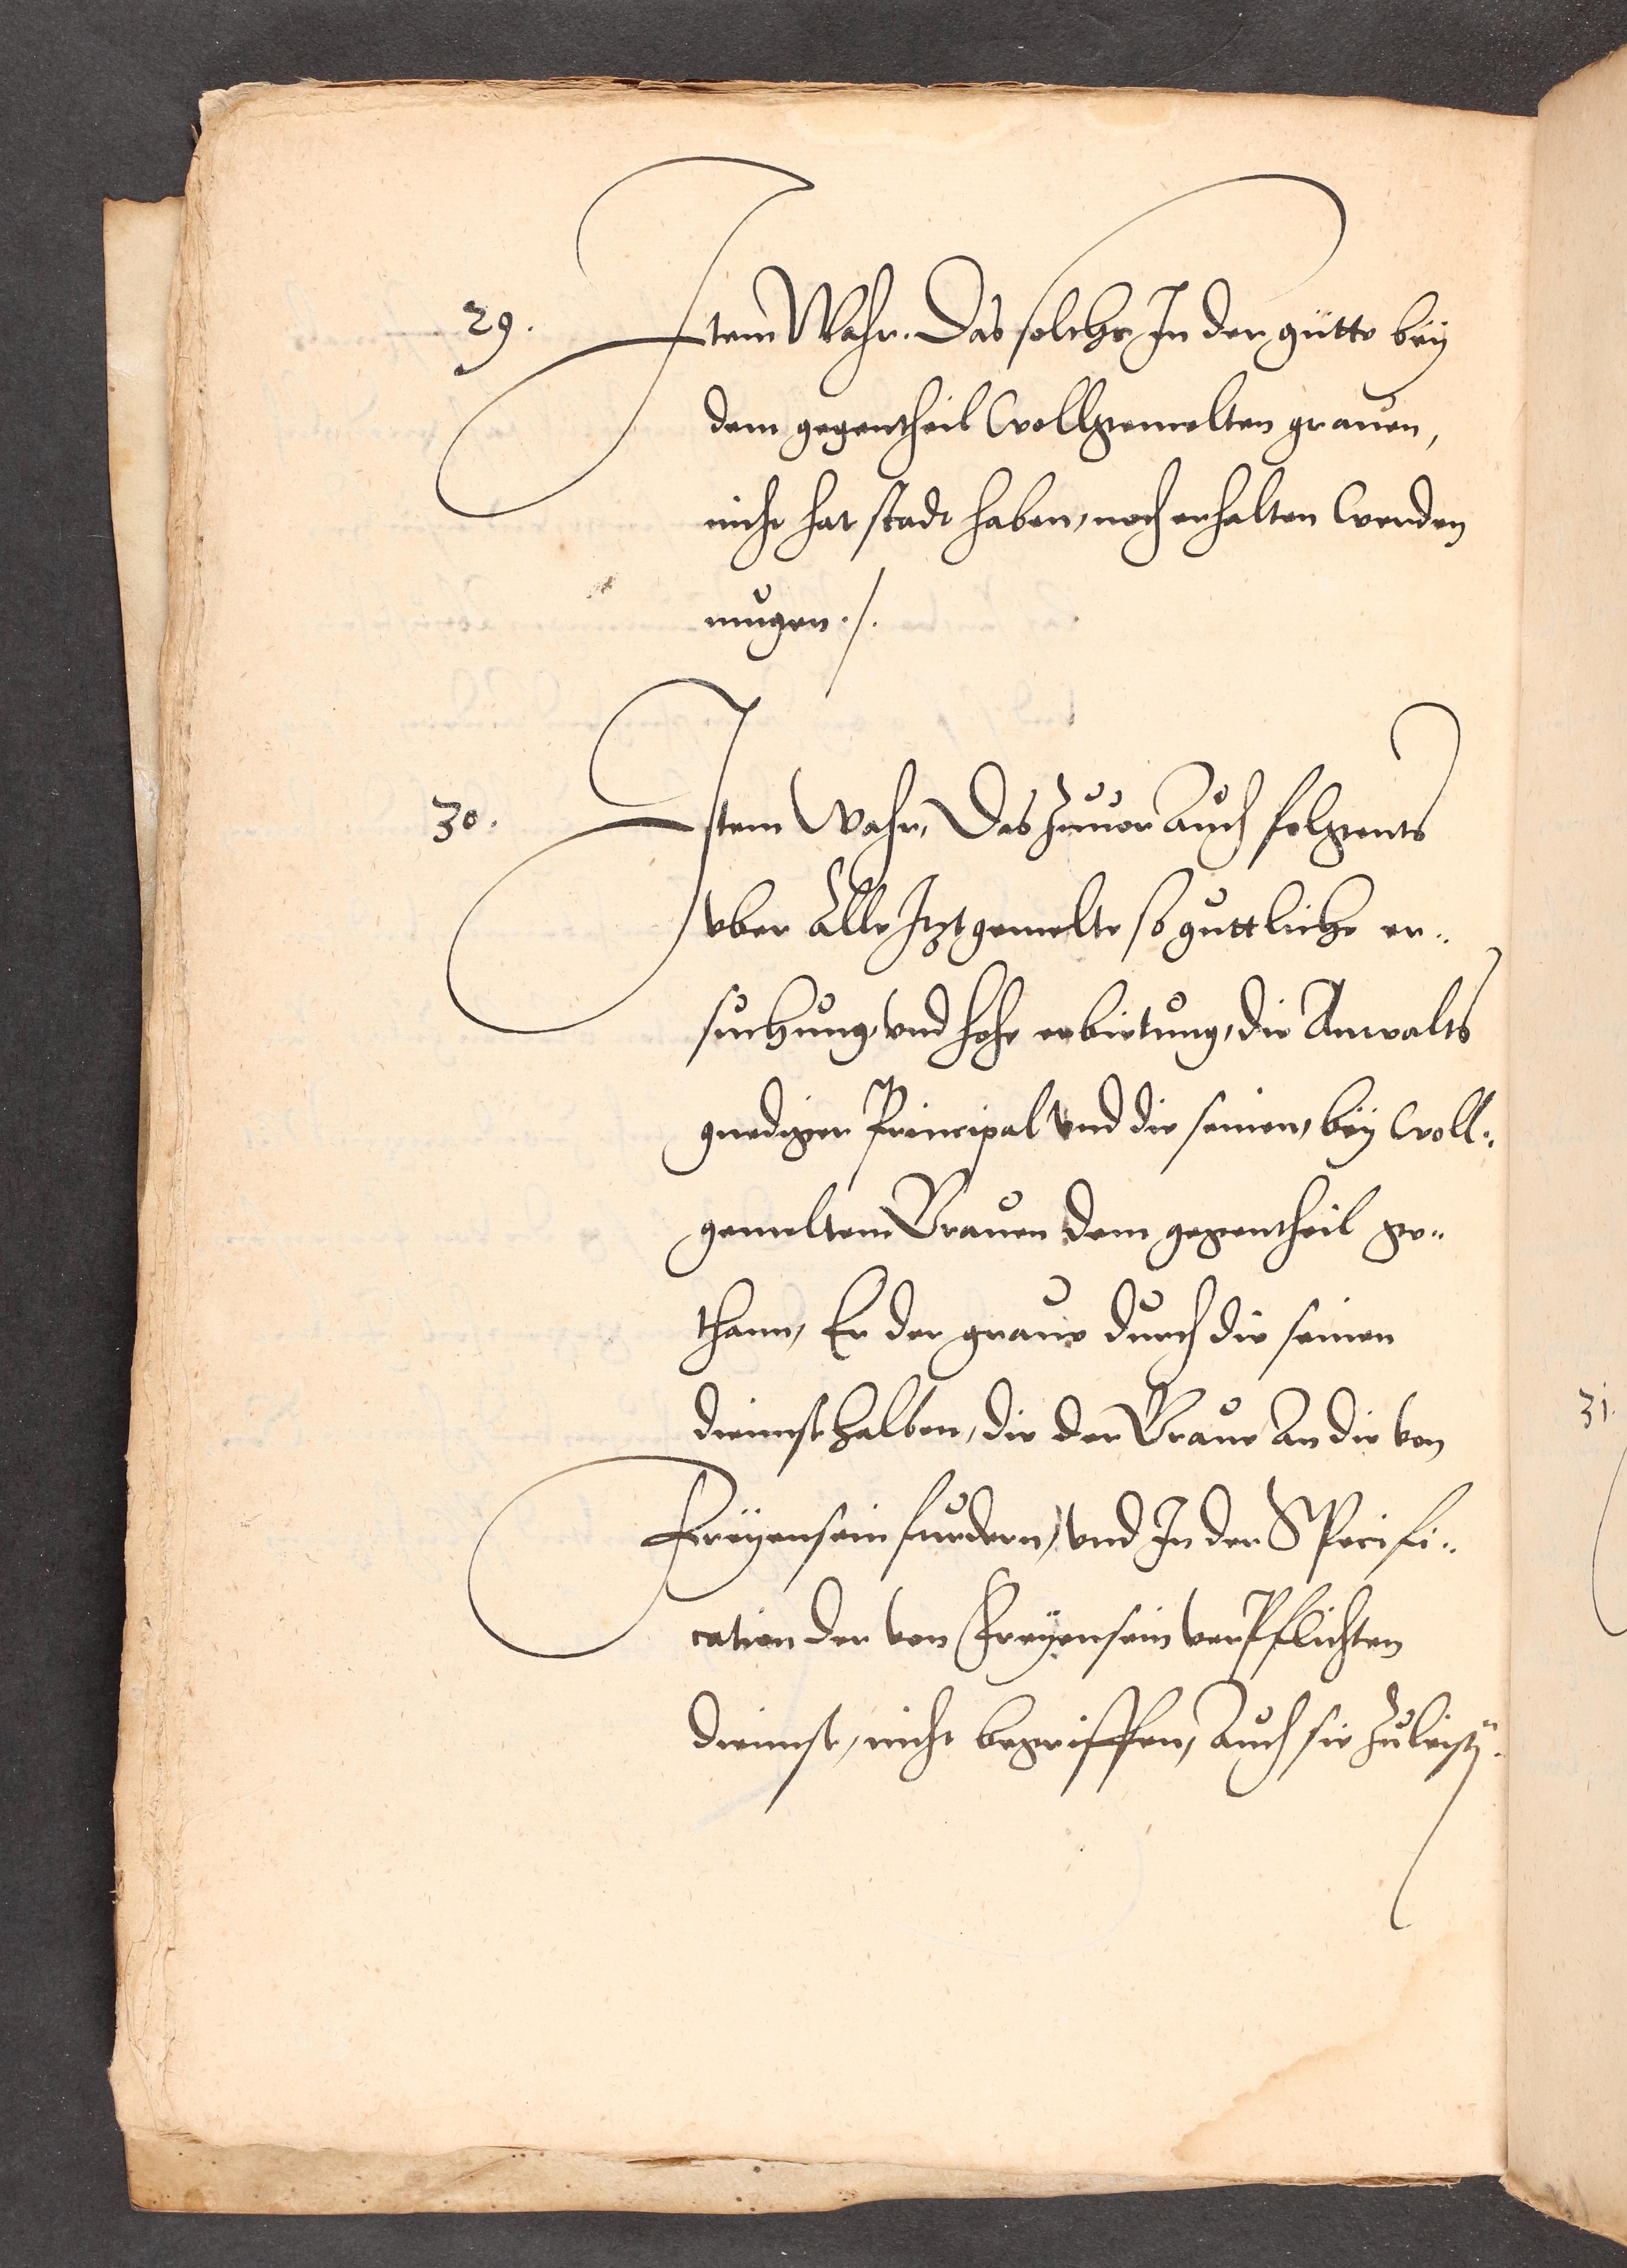 29. Item Wahr. Das solchs In der gütte beÿ
dem gegentheil Wollgemelten grauen,
nicht hat stadt haben, noch erhalten werden
mugen ./.
30. Item Wahr, Das zuuor Auch folgents
vber Alle Itztgemelte so guttliche er„
suchung, vnd hohe erbietung, die Anwalts
gnediger Principal vnd die seinen, beÿ Woll„
gemeltem Grauen dem gegentheil ge„
thann, Er der graue durch die seinen
diennst halben, die der Graue An die von
Freÿensein furdern, vnd In der Specifi„
cation der von Freÿensein verpflichten
diennst, nicht begriffen, Auch sie zuleistẽ
31.